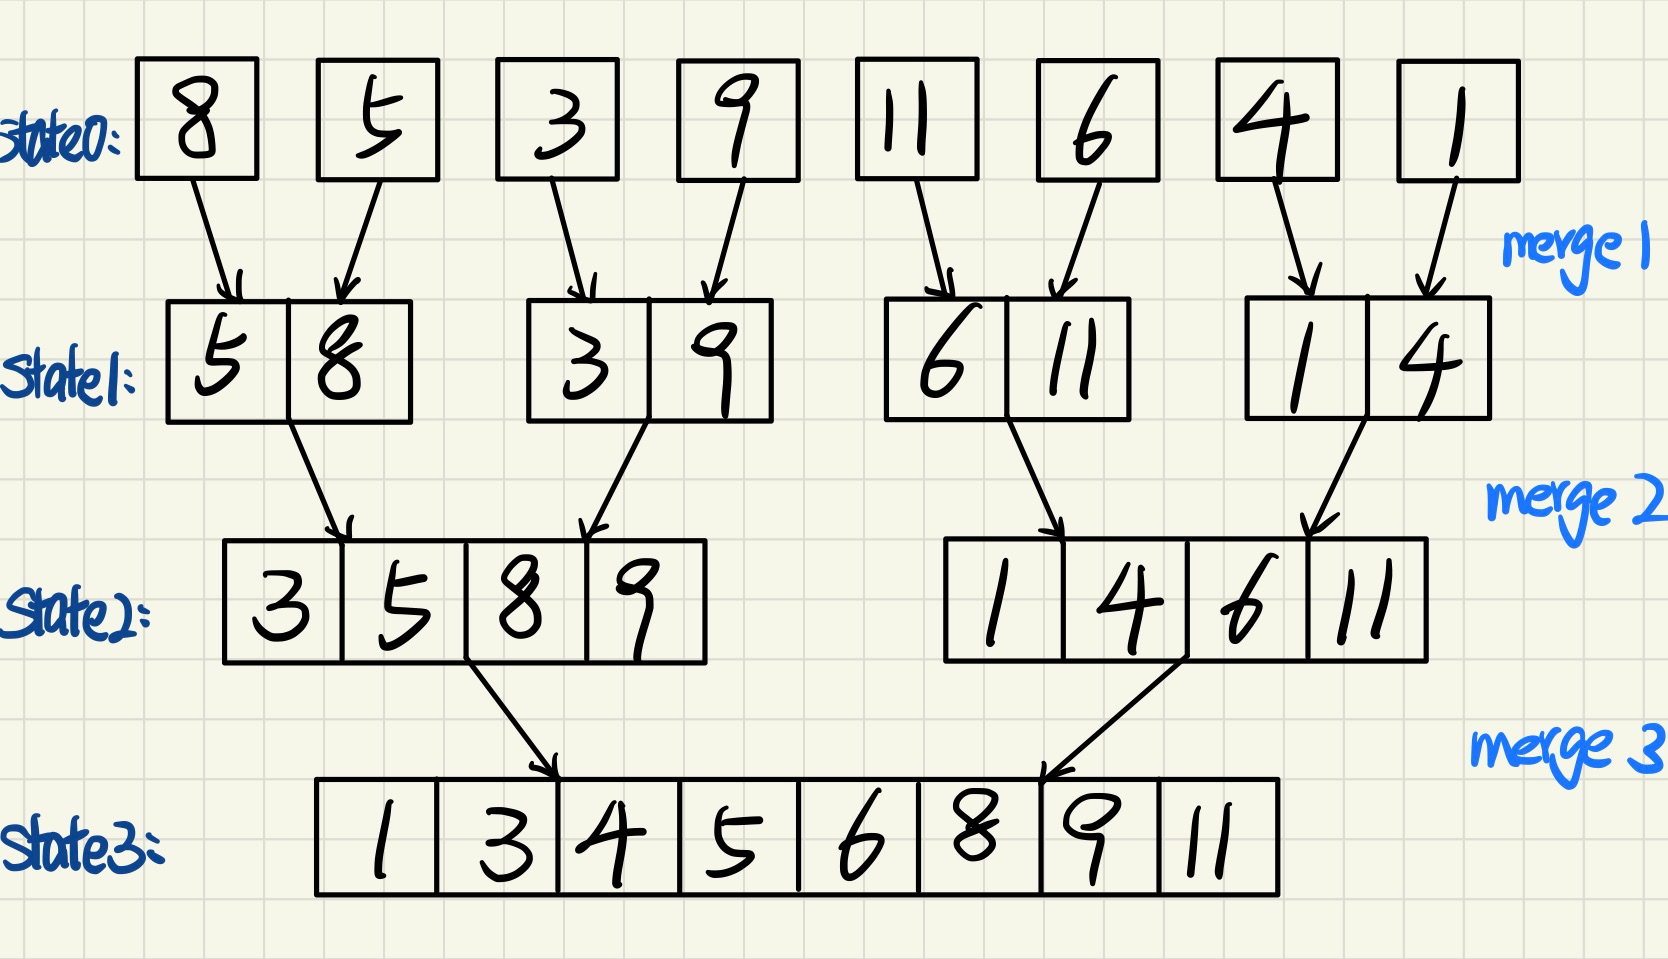 State0: 8 5 3 9 11 6 4 1
merge 1
State1: 5 8 3 9 6 11 1 4
merge 2
State2: 3 5 8 9 1 4 6 11
merge 3
State3: 1 3 4 5 6 8 9 11